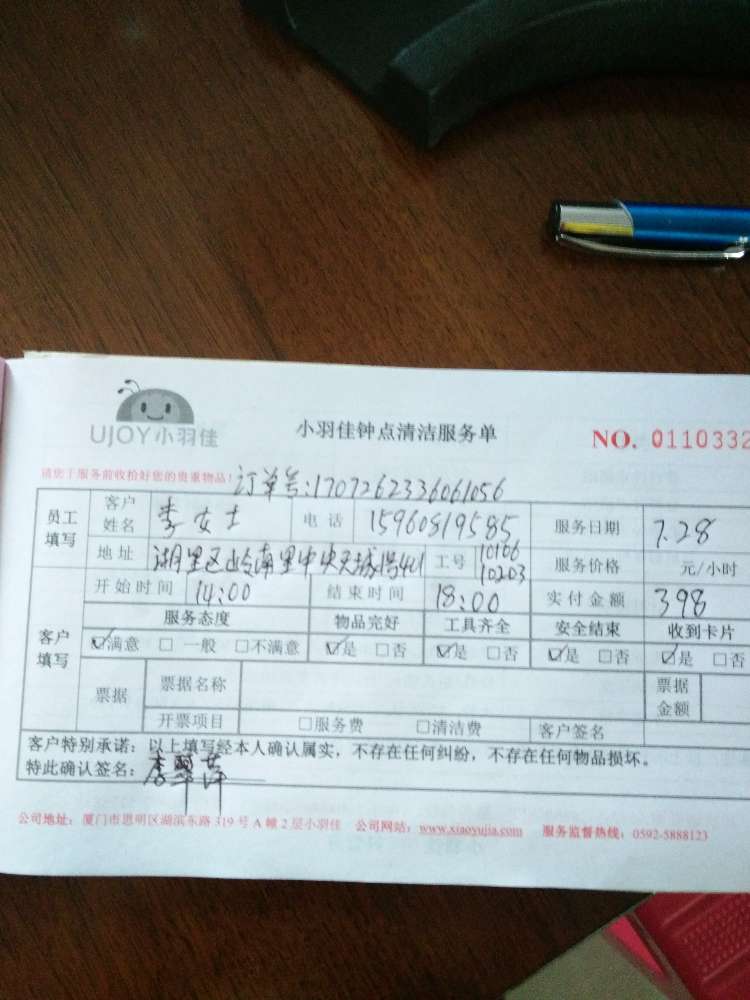 UJOY小羽佳
小羽佳钟点清洁服务单
NO. 0110332
请您于服务前收拾好您的贵重物品！
订单号:1707262336061056
员工填写 客户姓名 李女士 电话 15960819585 服务日期 7.28
地址 湖里区岭南里中央天城 工号 10106 10203 服务价格 元/小时
客户填写 开始时间 14:00 结束时间 18:00 实付金额 398
服务态度 物品完好 工具齐全 安全结束 收到卡片
☑满意 □一般 □不满意 ☑是 □否 ☑是 □否 ☑是 □否 ☑是 □否
票据 票据名称 票据金额
开票项目 □服务费 □清洁费 客户签名
客户特别承诺：以上填写经本人确认属实，不存在任何纠纷，不存在任何物品损坏。
特此确认签名：李翠萍
公司地址：厦门市思明区湖滨东路319号A幢2层小羽佳 公司网站：www.xiaoyujia.com 服务监督热线：0592-5888123